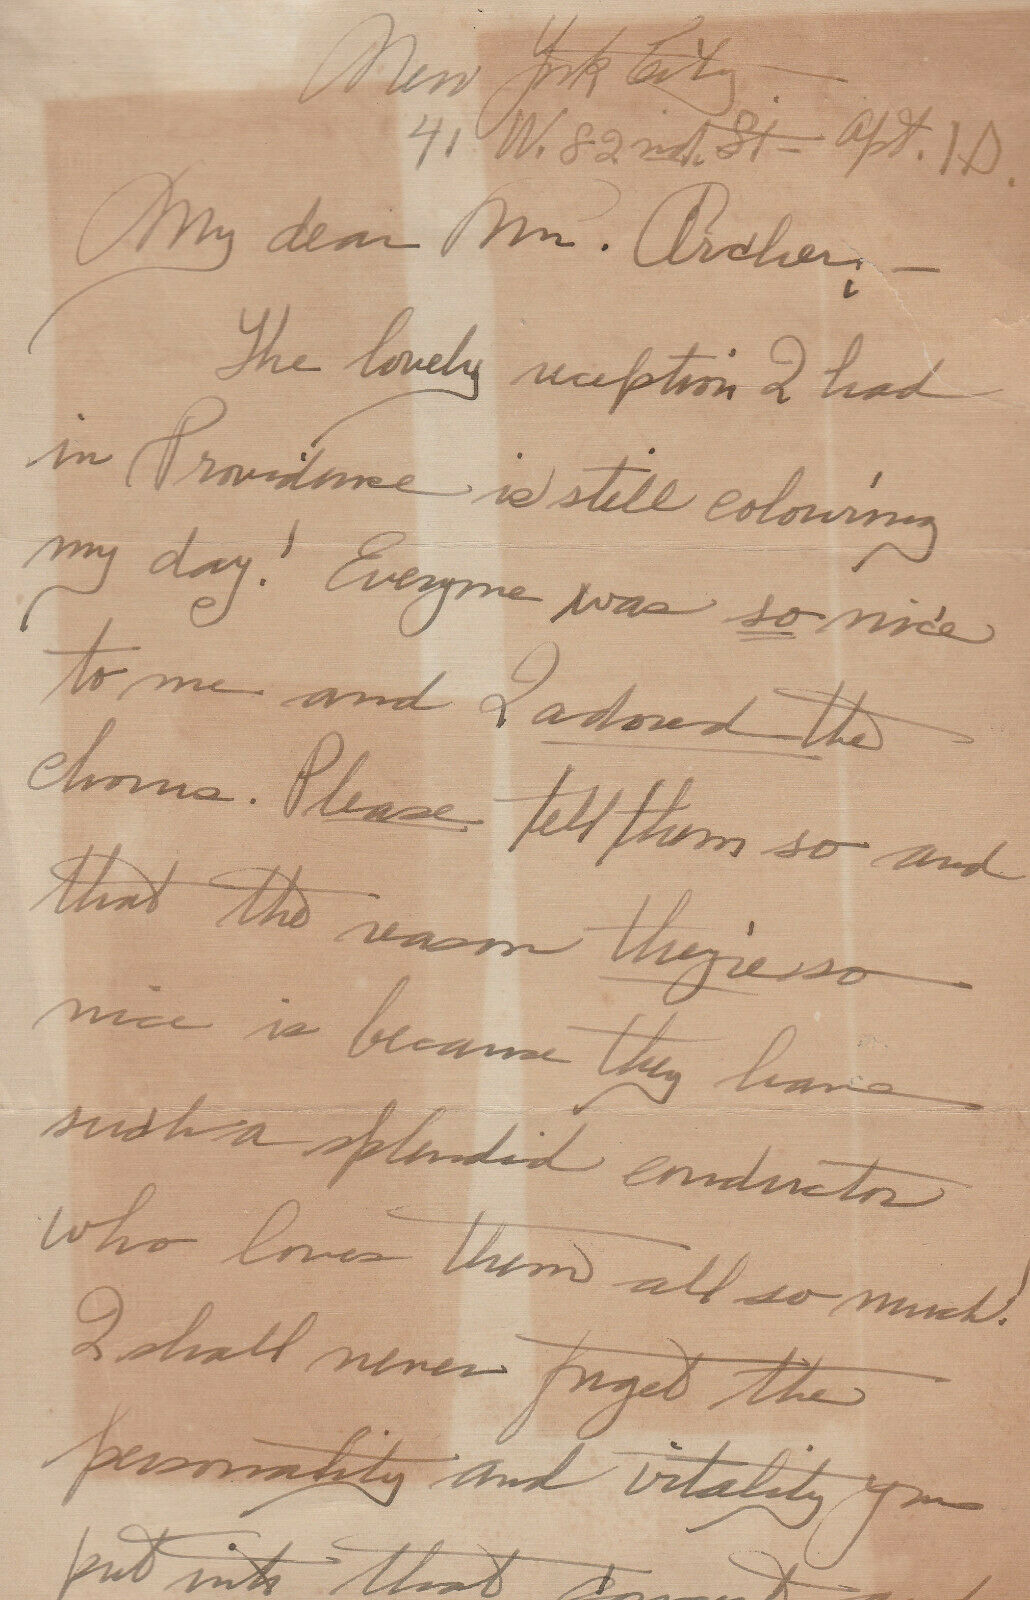 New York City
41 W. 82nd. St - Apt. 1D.
My dear Mr. Archer; -
The lovely reception I had
in Providence is still colouring
my day! Everyone was so nice
to me and I adored the
chorus. Please tell them so and
that the reason they're so
nice is because they have
such a splendid conductor
who loves them all so much!
I shall never forget the
personality and vitality you
put into that concert and